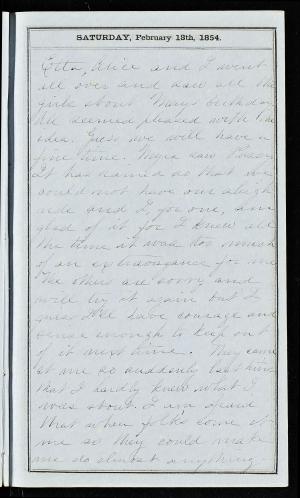 SATURDAY, February 18th, 1854.
Etta, Alice and I went
all over and saw all the
girls about Mary's birthday
All seemed pleased with the
idea. Guess we will have a
fine time. Mega saw
It has rained so that we
could not have our sleigh
ride and I, for one, am
glad of it for I knew all
the time it was too much
of an extravagance for me
The others are sorry and
will try it again but I
guess I'll have courage and
sense enough to keep out
of it next time. They came
at me so suddenly last time
that I hardly knew what I
was about. I am afraid
that when folks come at
me so they could make
me do almost anything.